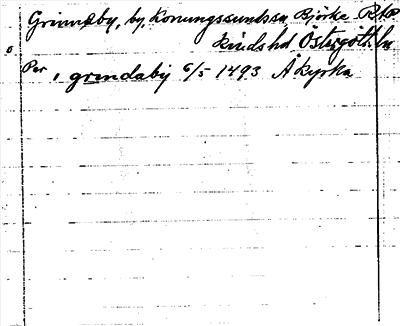 Grimmeby, by, Konungssundssn Björke
kindshd Östergötl. ln
Per i grindaby 6/5 1493 A kyrka